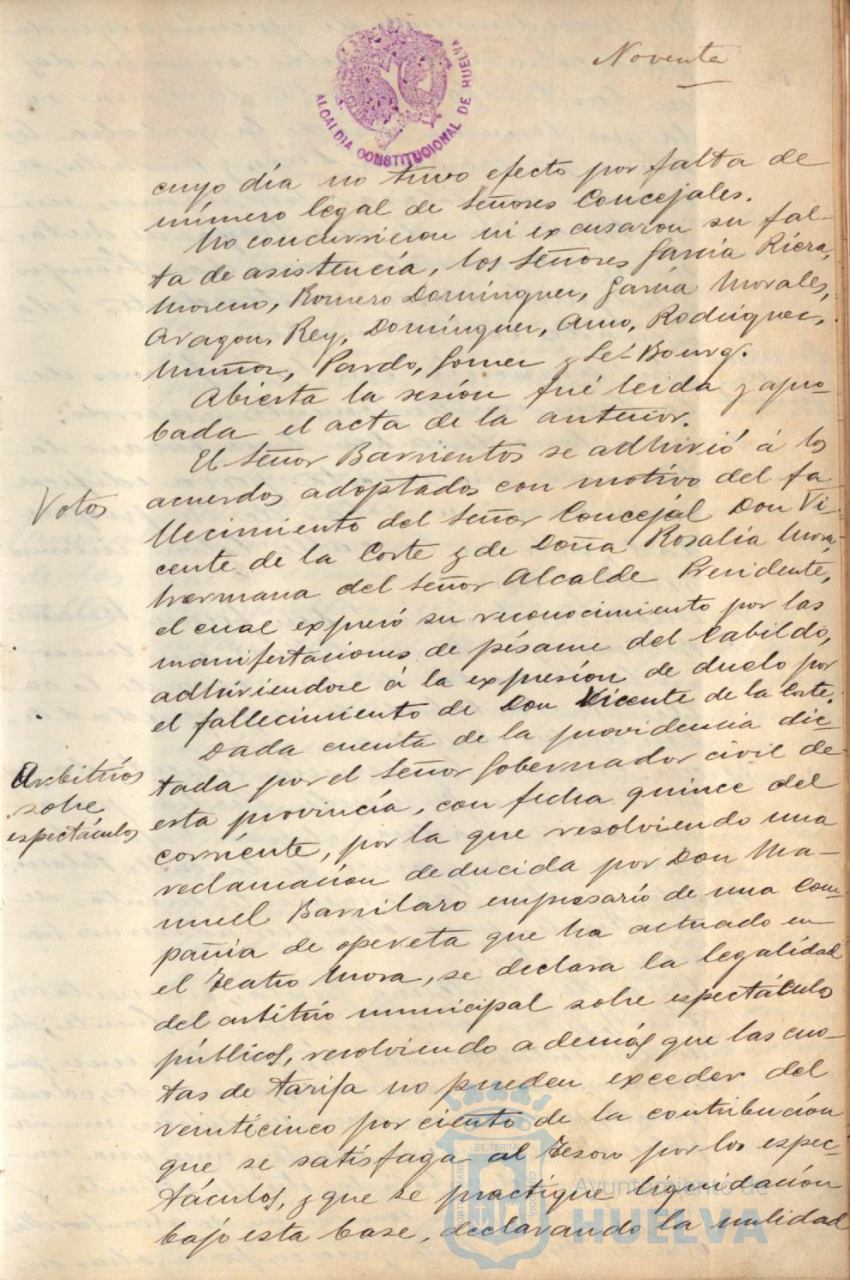 Noventa
ALCALDIA CONSTITUCIONAL DE HUELVA
cuyo día no tuvo efecto por falta de
número legal de Señores Concejales.
No concurrieron ni excusaron su fal-
ta de asistencia, los Señores García Riera,
Moreno, Romero Domínguez, García Morales,
Aragon, Rey, Domínguez, Amo, Rodríguez,
Muñoz, Pardo, Gomez y Le-Bourg.
Abierta la sesión fué leida y apro-
bada el acta de la anterior.
Votos
El Señor Barrientos se adhirió á los
acuerdos adoptados con motivo del fa-
llecimiento del Señor Concejal Don Vi-
cente de la Corte y de Doña Rosalia Mora,
hermana del Señor Alcalde Presidente,
el cual expresó su reconocimiento por las
manifestaciones de pésame del Cabildo,
adhiriendose á la expresión de duelo por
el fallecimiento de Don Vicente de la Corte.
Arbitrios
sobre
espectáculos
Dada cuenta de la providencia dic-
tada por el Señor Gobernador civil de
esta provincia, con fecha quince del
corriente, por la que resolviendo una
reclamación deducida por Don Ma-
nuel empresario de una Com-
pañia de opereta que ha actuado en
el Teatro Mora, se declara la legalidad
del arbitrio municipal sobre espectáculos
públicos, resolviendo además que las cuo-
tas de tarifa no pueden exceder del
veinticinco por ciento de la contribución
que se satisfaga al Tesoro por los espec-
táculos, y que se practique liquidación
bajo esta base, declarando la nulidad
Ayuntamiento de
HUELVA